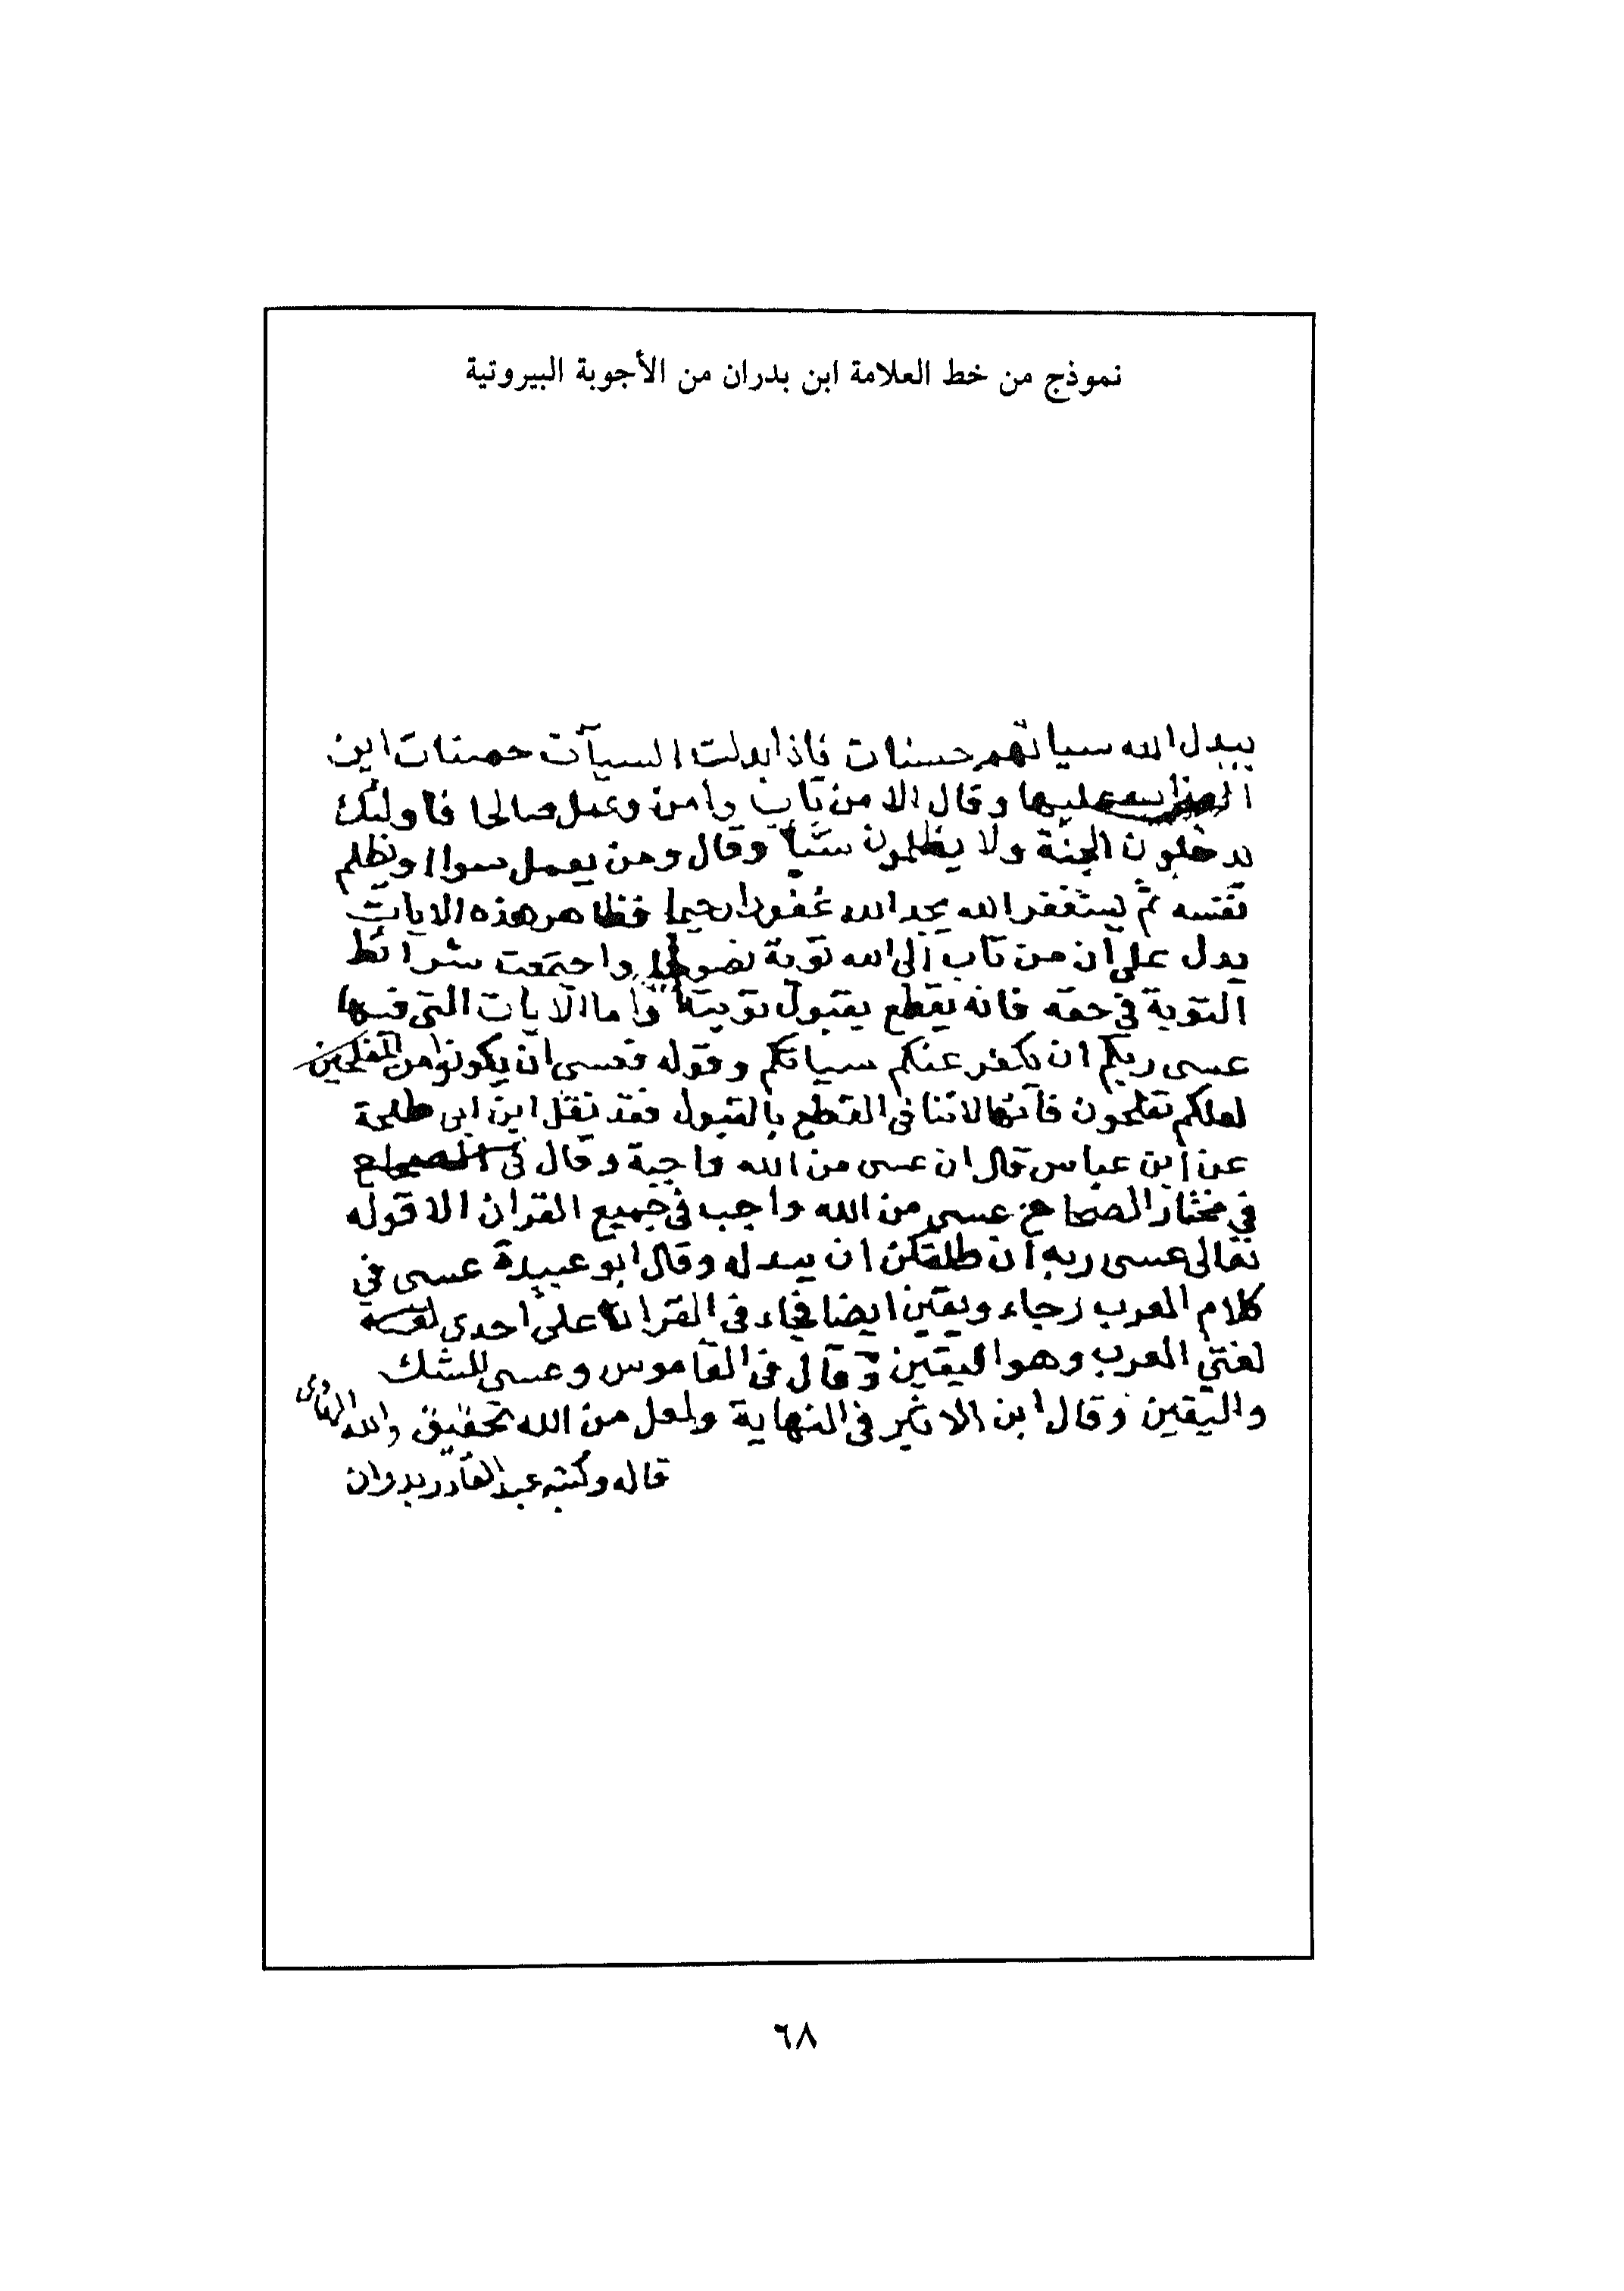 نموذج من خط العلامة ابن بدران من الأجوبة البيروتية
يبدل الله سياتهم حسنات فاذا بدلت السيآت حسنات اين
عليها وقال الا من تاب وامن وعمل صالحا فاولئك
يدخلون الجنة ولا يظلمون شيأ وقال ومن يعمل سوا او يظلم
نفسه ثم يستغفر الله يجد الله غفورا رحيما فظاهر هذه الايات
يدل على ان من تاب الى الله توبة نصوحا واجتمعت شرائط
التوبة في حقه فانه يقطع بقبول توبته واما الايات التي فيها
عسى ربكم ان يكفر عنكم سياتكم وقوله فعسى ان يكونوا من المفلحين
لعلكم تفلحون فانها لا تنافى القطع بالقبول فقد نقل ابن ابى طلحة
عن ابن عباس قال ان عسى من الله واجبة وقال في الصحاح
في مختار الصحاح عسى من الله واجب في جميع القران الا قوله
تعالى عسى ربه ان طلقكن ان يبدله وقال ابو عبيدة عسى في
كلام العرب رجاء ويقين ايضا فجاء في القران على احدى
لغتي العرب وهو اليقين وقال في القاموس وعسى للشك
واليقين وقال ابن الاثير في النهاية ولعل من الله تحقيق والله الهادى
قاله وكتبه عبد القادر بدران
٦٨